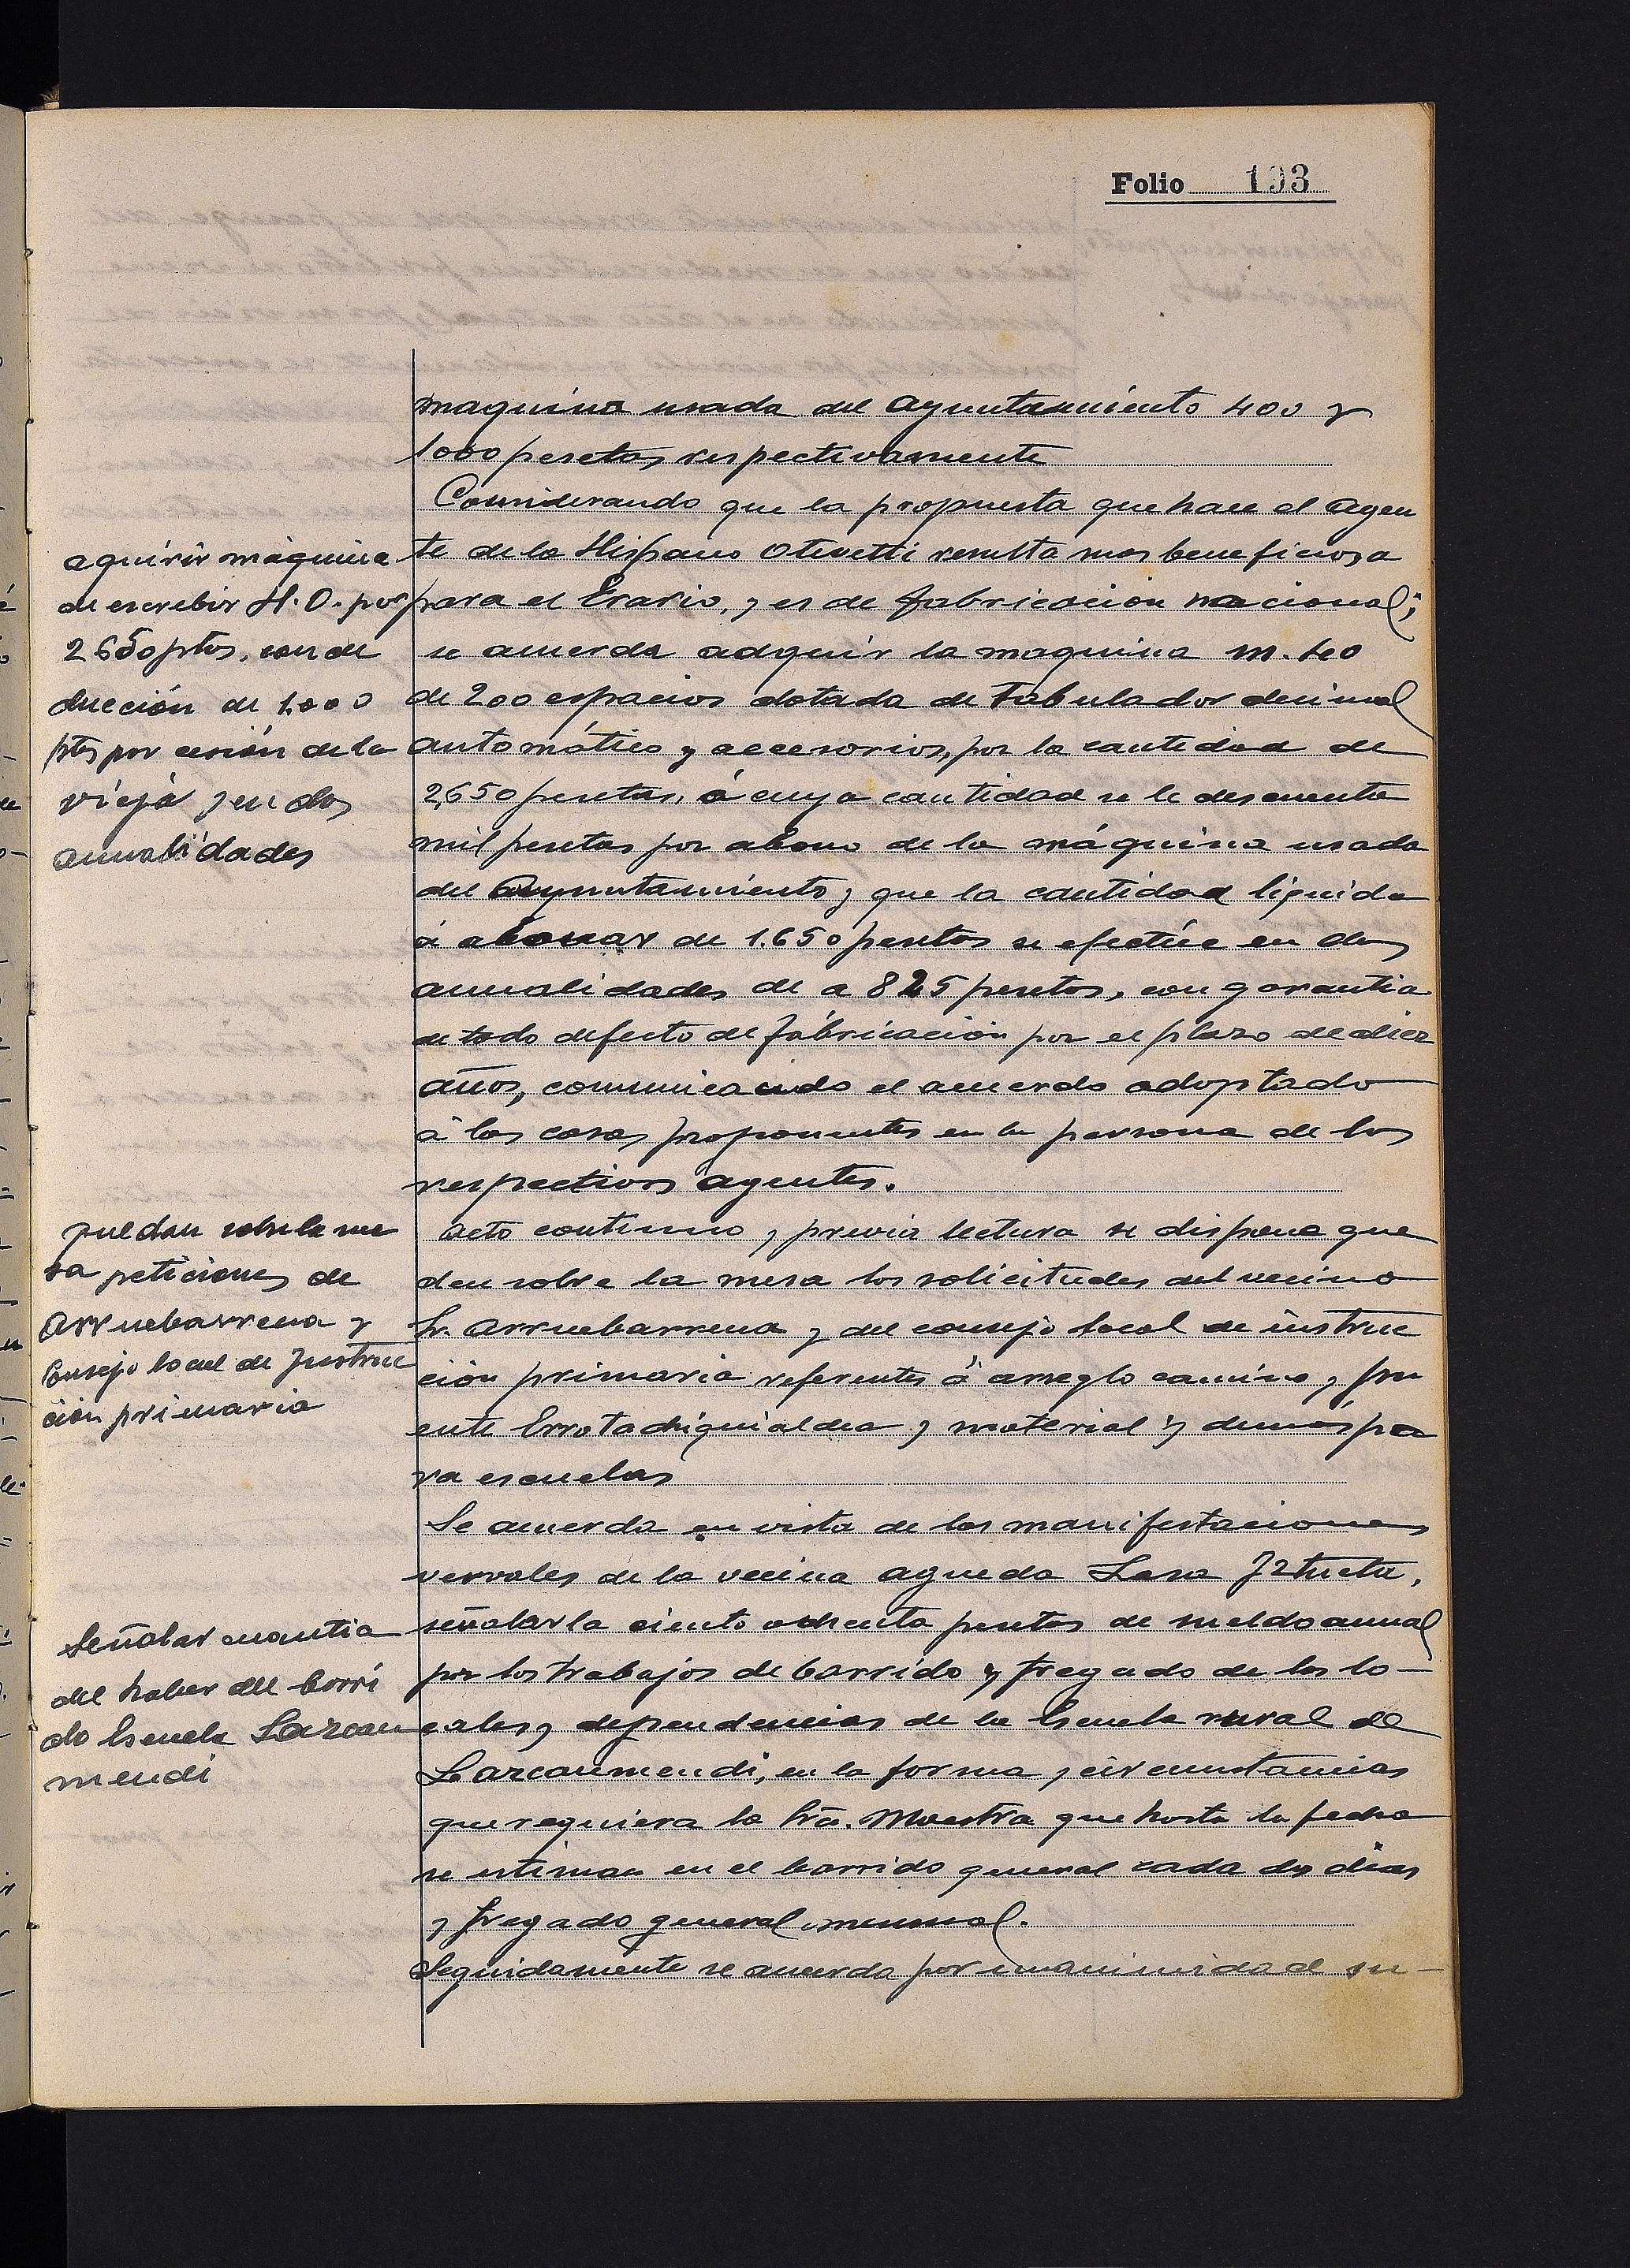 Folio 193
maquina usada del Ayuntamiento 400 y
1000 pesetas respectivamente
Considerando que la propuesta que hace el agen
te de la Hispano Olivetti resulta mas beneficiosa
para el Erario, y es de fabricación nacional;
se acuerda adquir la maquina M. 40
de 200 espacios dotada de Tabulador decimal
automático y accesorios, por la cantidad de
2,650 pesetas, á cuya cantidad se le descuenta
mil pesetas por abono de la máquina usada
del Ayuntamiento y que la cantidad liquida
á abonar de 1.650 pesetas se efectúe en dos
anualidades de a 825 pesetas, con garantia
de todo defecto de fabricación por el plazo de diez
años, comunicando el acuerdo adoptado
á las casas proponentes en la persona de los
respectivos agentes.
Acto continuo y previa lectura se dispone que
den sobre la mesa las solicitudes del vecino
Sr. Arruebarrena y del consejo local de instruc
ción primaria referentes á arreglo camino y pu
ente Errotachiquialdea y material y demás pa
ra escuelas
Se acuerda en vista de las manifestaciones
vervales de la vecina Agueda Lasa Iztueta,
señalarla ciento ochenta pesetas de sueldo anual
por los trabajos de barrido y fregado de los lo-
cales y dependencias de la Escuela rural de
Lazcaumendi, en la forma y circunstancias
que requiera la Sra. Maestra que hasta la fecha
se estiman en el barrido general cada dos dias
y fregado general mensual.
Seguidamente se acuerda por unanimidad su-
aquirir máquina
de escribir H.O. por
2650 ptas, con de
ducción de 1.000
ptas por cesión de la
vieja y en dos
anualidades
quedan sobre la me
sa peticiones de
Arruebarrena y
Consejo local de Instruc
ción primaria
Señalar cuantia
del haber del barri
do Escuela Lazcau
mendi